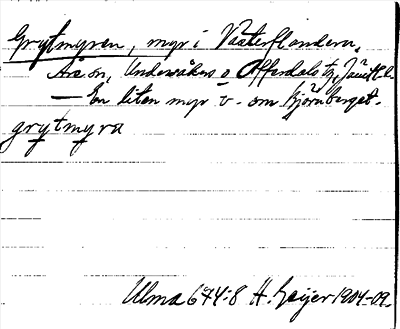 Grytmyren, myr i Västerflandern,
Åre sn, Undersåkers o Offerdals tg, Jämtl.
— En liten myr v. om Björnberget.
grytmyra
Ulma 674:8 H. Geijer 1904-09.